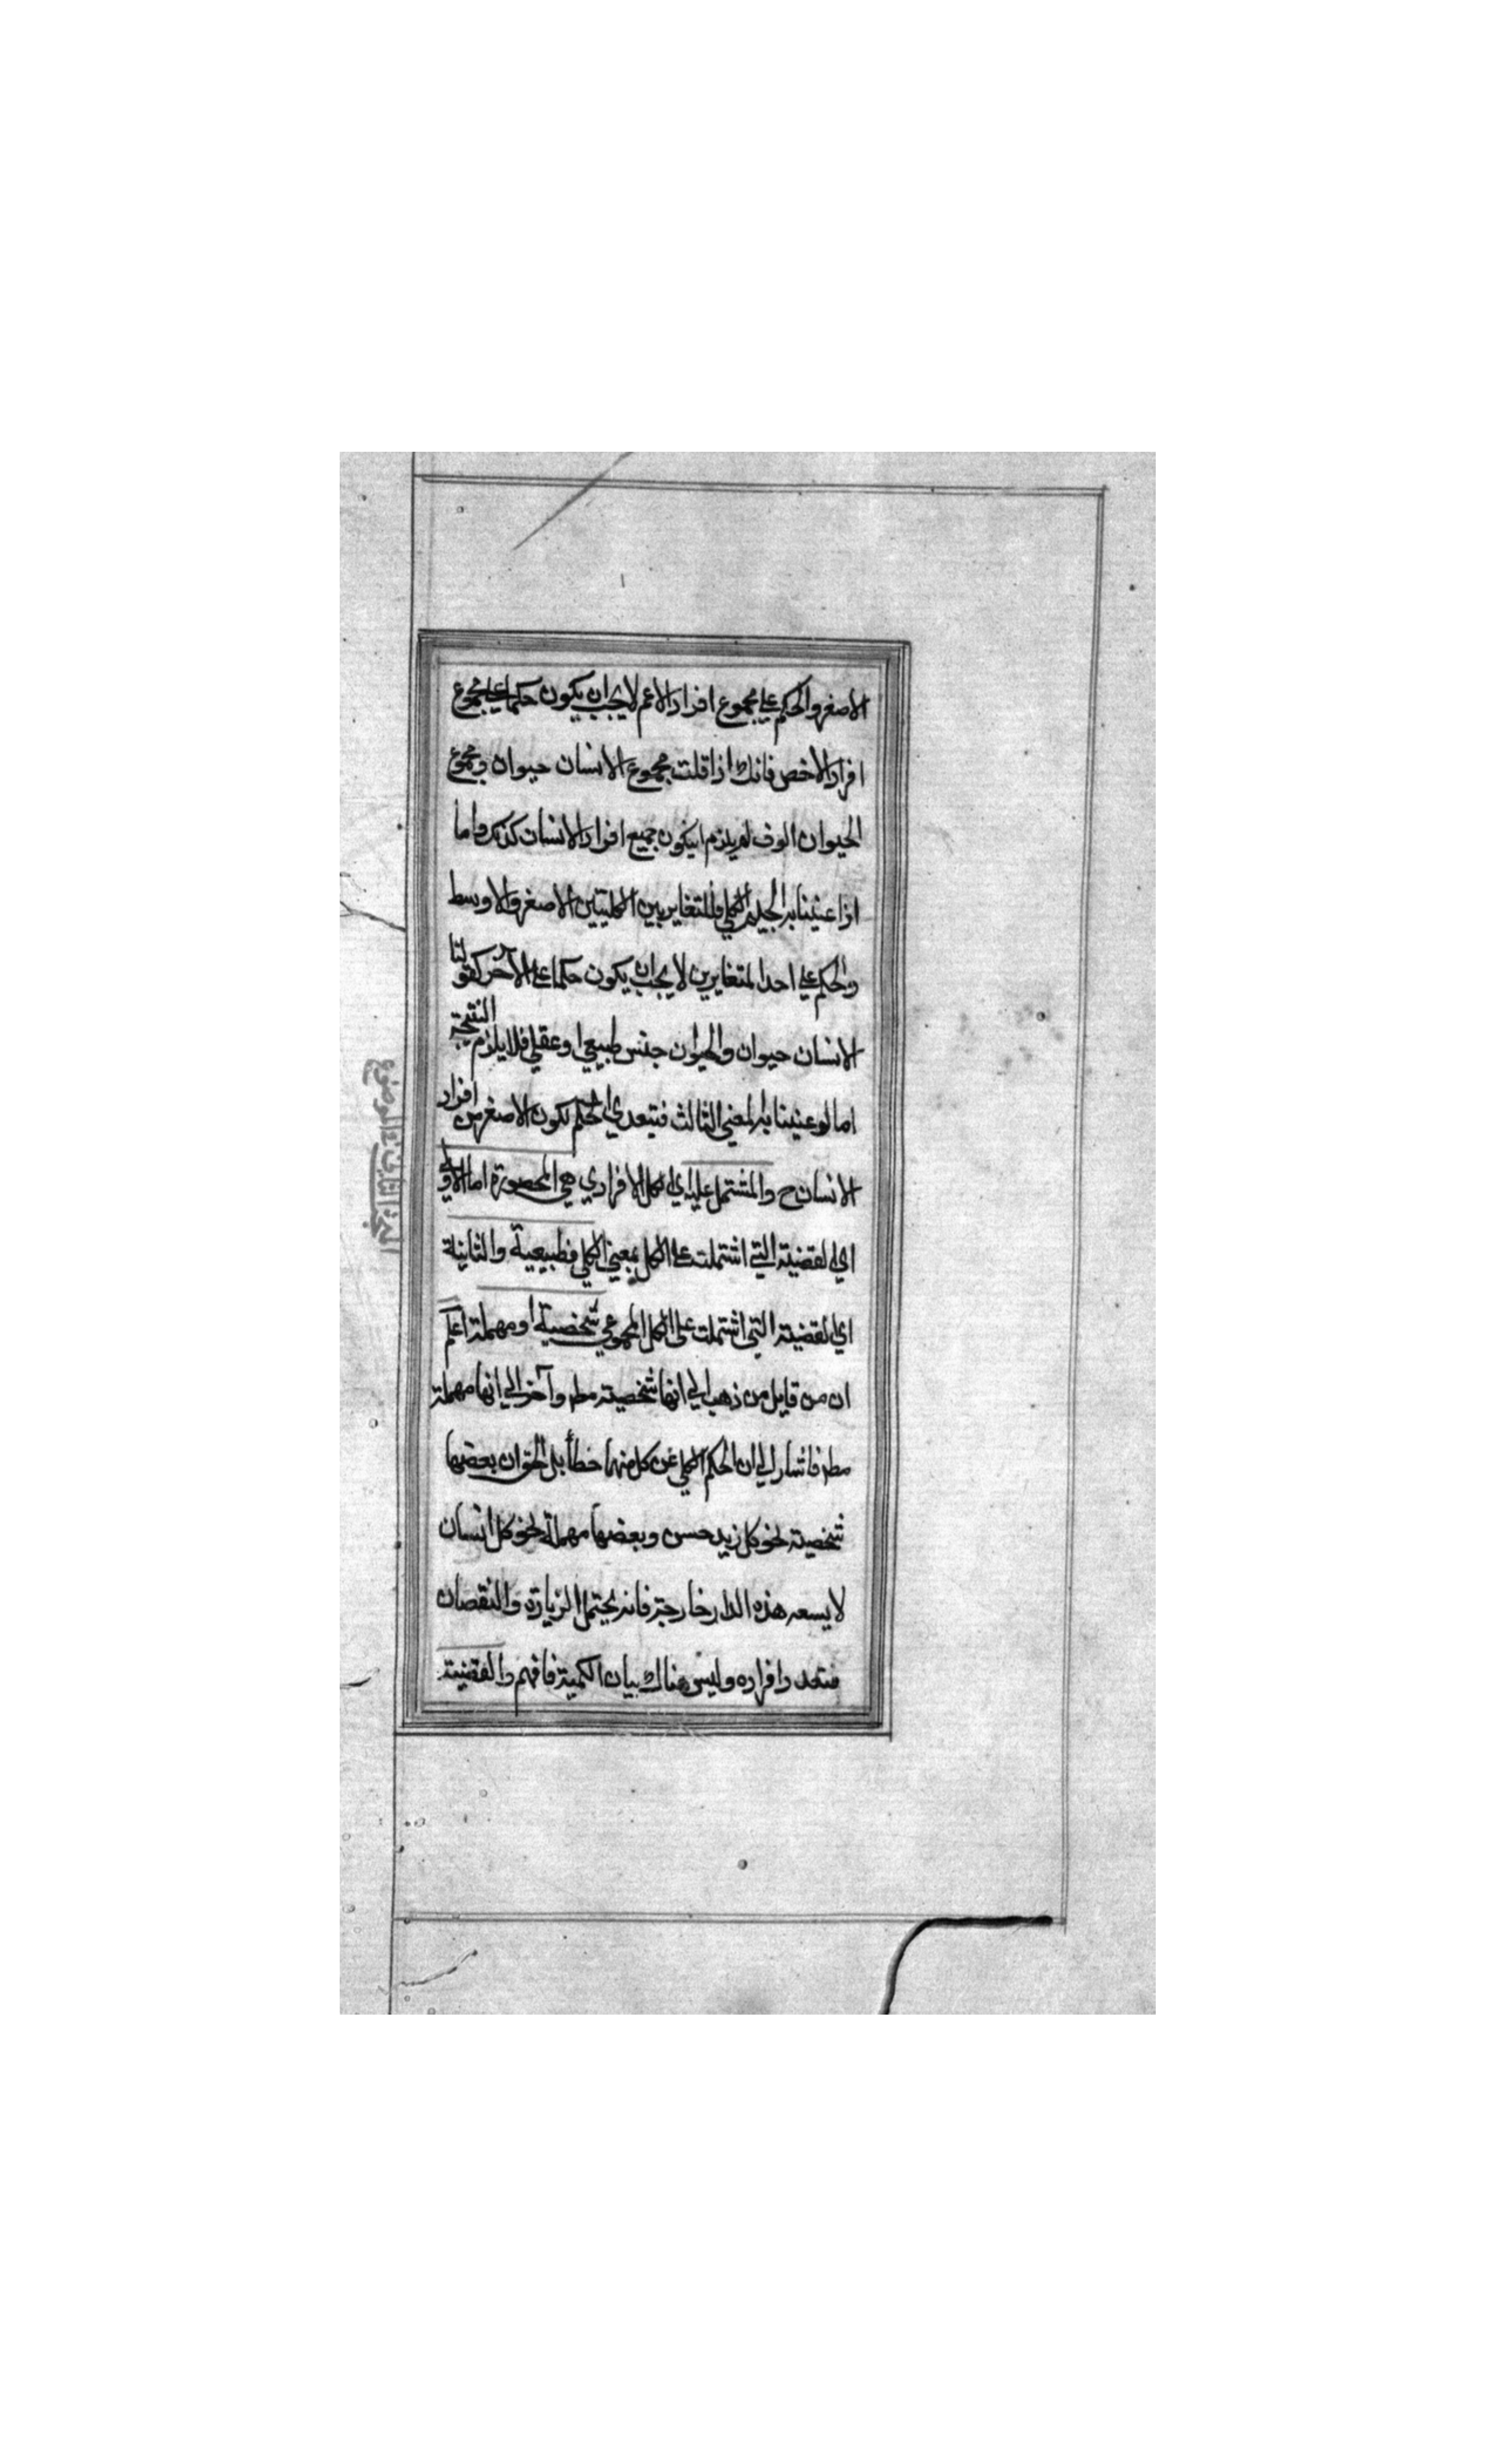 الاصغر والحكم على مجموع افراد الاعم لا يجب ان يكون حكما على مجموع
افراد الاخص فانك اذا قلت مجموع الانسان حيوان ومجموع
الحيوان الوف لم يلزم ان يكون جميع افراد الانسان كذلك واما
اذا عنينا به الكلي فللتغاير بين الكليتين الاصغر والاوسط
والحكم على احد المتغايرين لا يجب ان يكون حكما على الآخر كقولنا
الانسان حيوان والحيوان جنس طبيعي او عقلي فلا يلزم النتيجة
اما لو عنينا به المعنى الثالث فيتعدي الحكم لكون الاصغر من افراد
الانسان ح والمشتمل عليه اي الكل الافرادي هي المحصورة اما الاولى
اي القضية التي اشتملت على الكل بمعنى الكلي فطبيعية والثانية
اي القضية التي اشتملت على الكل المجموعي شخصية او مهملة اعلم
ان من قايل من ذهب الي انها شخصية مط وآخر الي انها مهملة
مط فاشار الي ان الحكم الكلي عن كل منهما خطأ بل الحق ان بعضها
شخصية نحو كل زيد حسن وبعضها مهملة نحو كل انسان
لا يسعه هذه الدار خارجة فانه يحتمل الزيادة والنقصان
فتعدد افراده وليس هناك بيان الكمية فافهم والقضية